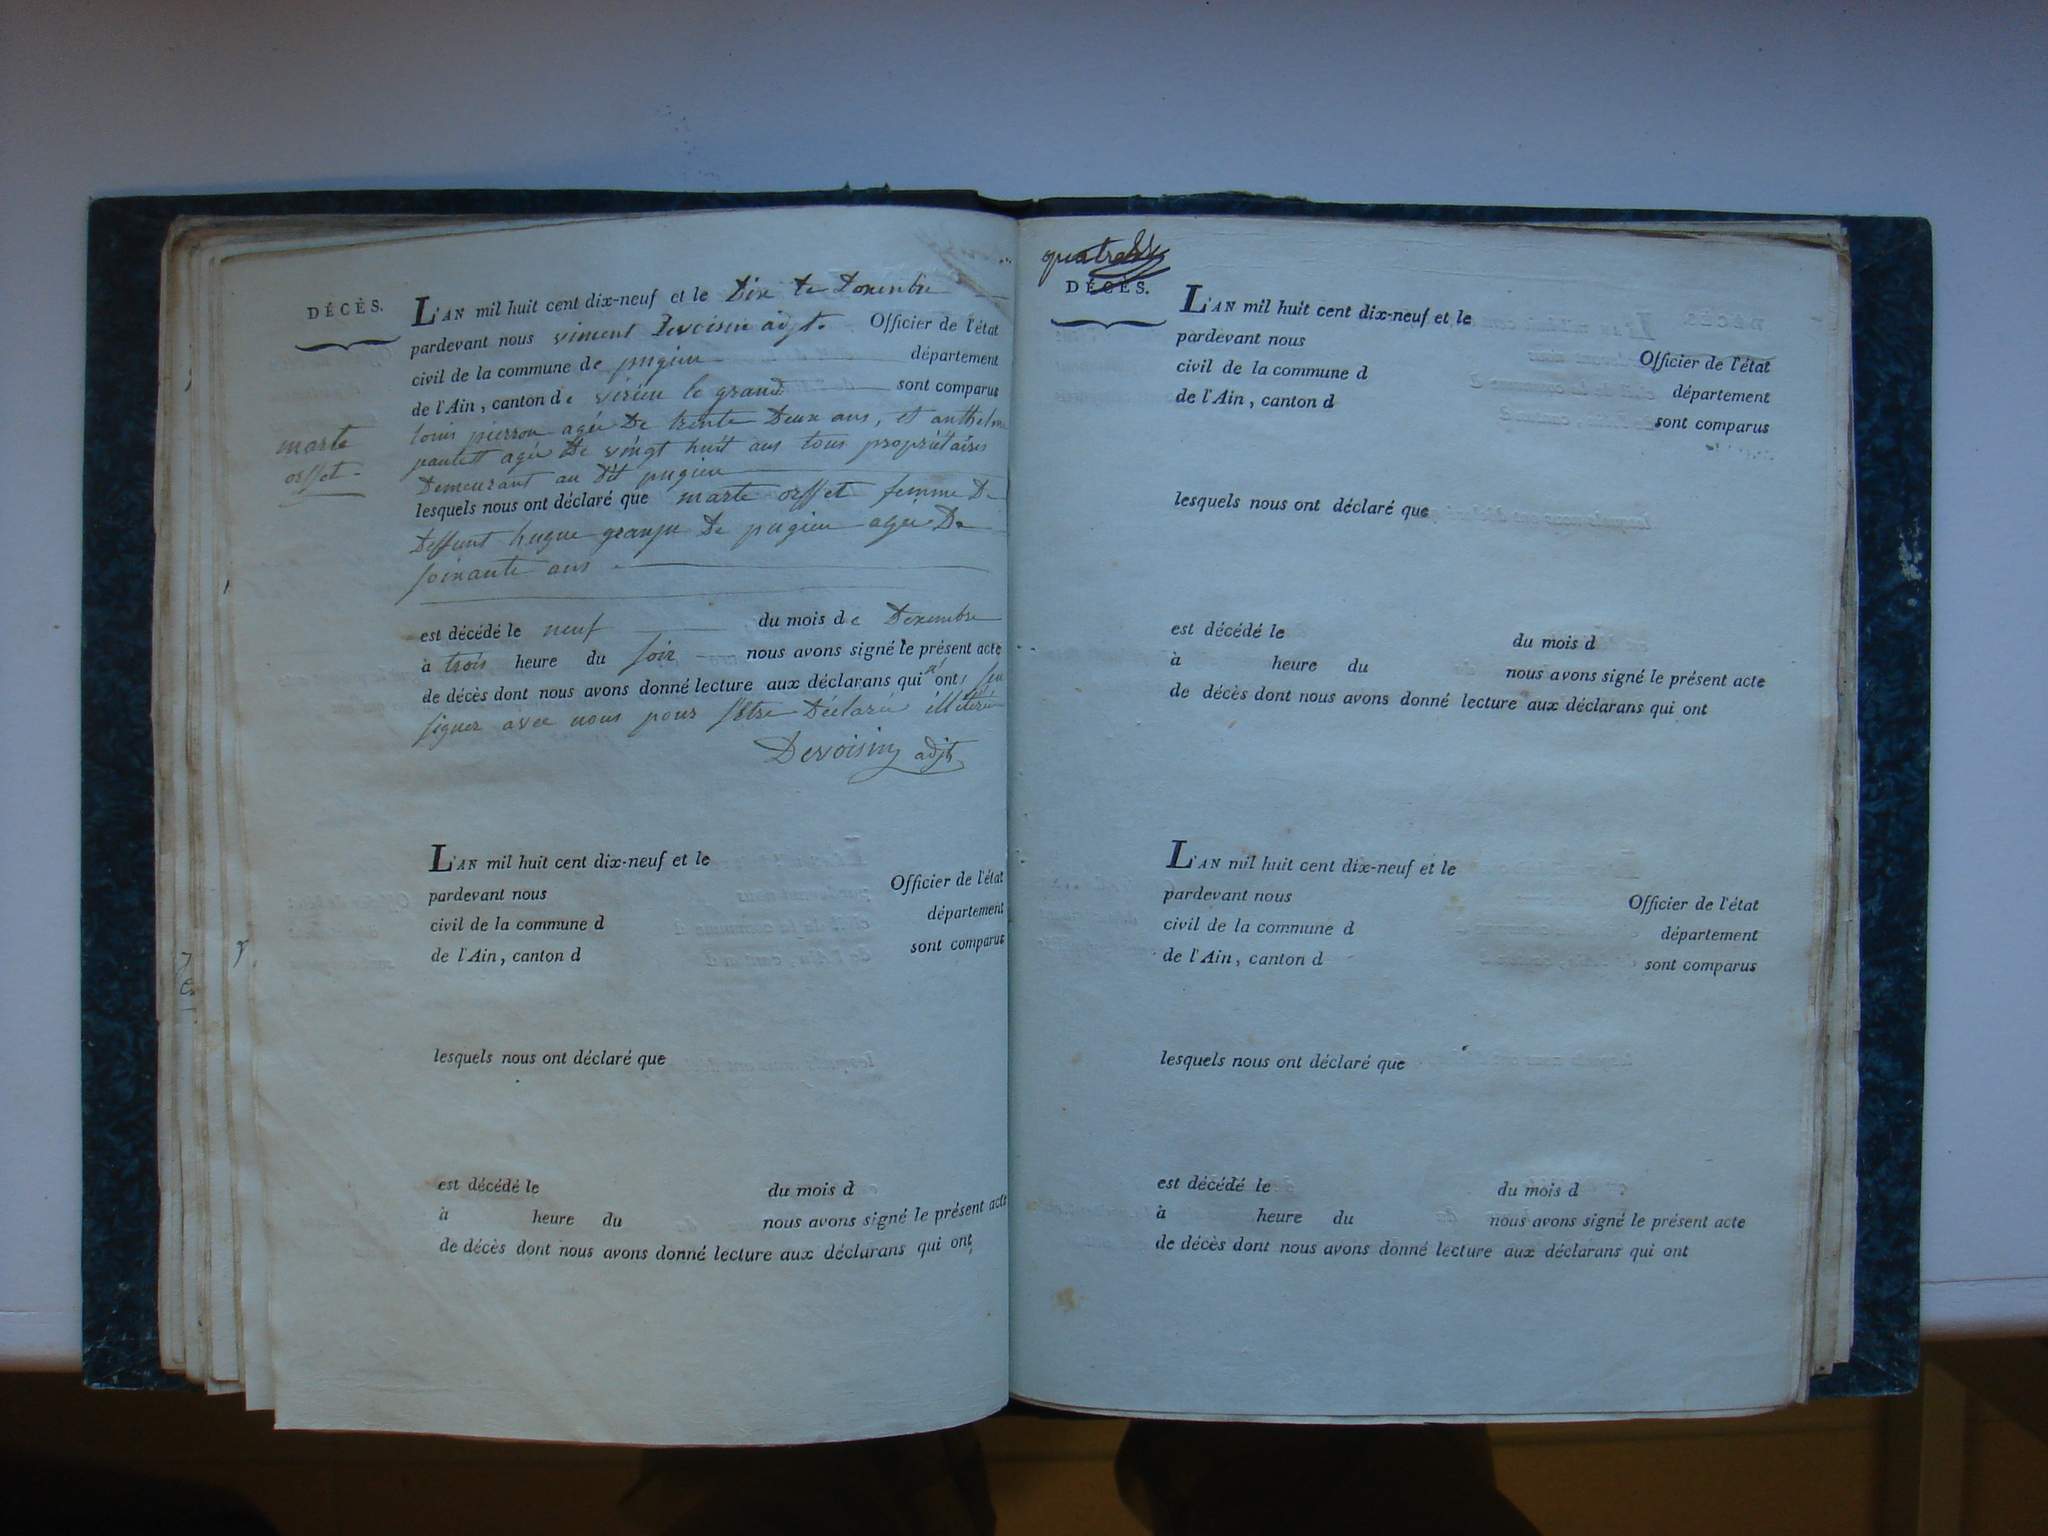 DÉCÈS.
L'AN mil huit cent dix-neuf et le Dix
pardevant nous Devoisin adjt. Officier de l'état
civil de la commune de pugieu département
de l'Ain, canton de virieu le grand sont comparus
louis pierron agée De trente Deux ans, et anthelme
agée De vingt huit ans tous propriétaires
Demeurant au dit pugieu
marte
orsset
lesquels nous ont déclaré que marte orsset femme De
Deffunt hugue De pugieu agée De
soixante ans
est décédé le neuf du mois de
à trois heure du soir nous avons signé le présent acte
de décès dont nous avons donné lecture aux déclarans qui n'ont
signer avec nous pour s'être Déclaré
Devoisin adjt
L'AN mil huit cent dix-neuf et le
pardevant nous Officier de l'état
civil de la commune d département
de l'Ain, canton d sont comparus
lesquels nous ont déclaré que
est décédé le du mois d
à heure du nous avons signé le présent acte
de décès dont nous avons donné lecture aux déclarans qui ont
DÉCÈS.
L'AN mil huit cent dix-neuf et le
pardevant nous Officier de l'état
civil de la commune d département
de l'Ain, canton d sont comparus
lesquels nous ont déclaré que
est décédé le du mois d
à heure du nous avons signé le présent acte
de décès dont nous avons donné lecture aux déclarans qui ont
L'AN mil huit cent dix-neuf et le
pardevant nous Officier de l'état
civil de la commune d département
de l'Ain, canton d sont comparus
lesquels nous ont déclaré que
est décédé le du mois d
à heure du nous avons signé le présent acte
de décès dont nous avons donné lecture aux déclarans qui ont